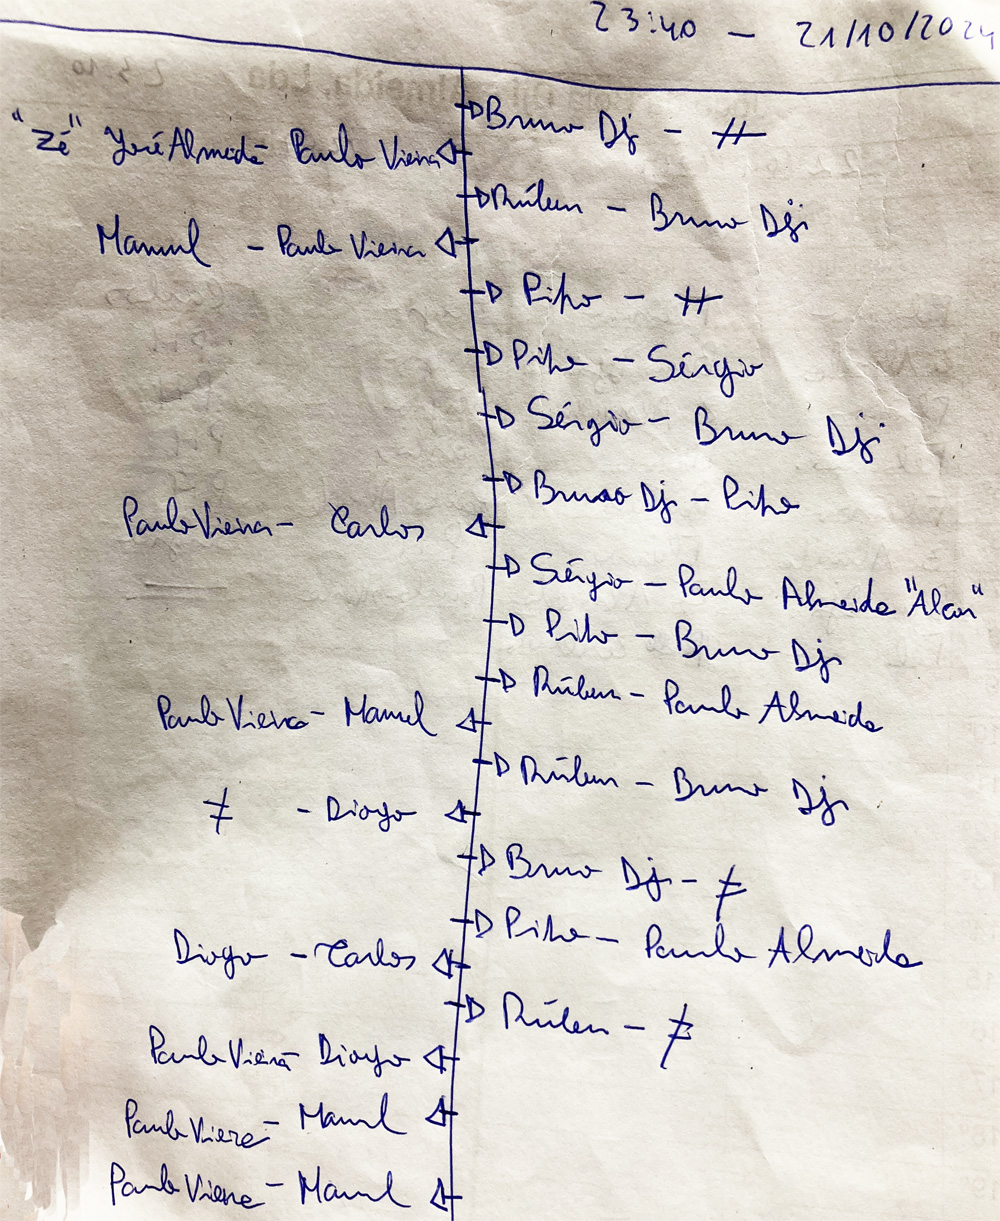 23:40 — 21/10/2024
Bruno Dj - #
"Zé" José Almeida - Paulo Vieira
Rúben - Bruno Dj
Manuel - Paulo Vieira
Pipo - #
Pipo - Sérgio
Sérgio - Bruno Dj
Bruno Dj - Pipo
Paulo Vieira - Carlos
Sérgio - Paulo Almeida "Alcan"
Pipo - Bruno Dj
Rúben - Paulo Almeida
Paulo Vieira - Manuel
Rúben - Bruno Dj
≠ - Diogo
Bruno Dj - ≠
Pipo - Paulo Almeida
Diogo - Carlos
Rúben - ≠
Paulo Vieira - Diogo
Paulo Vieira - Manuel
Paulo Vieira - Manuel